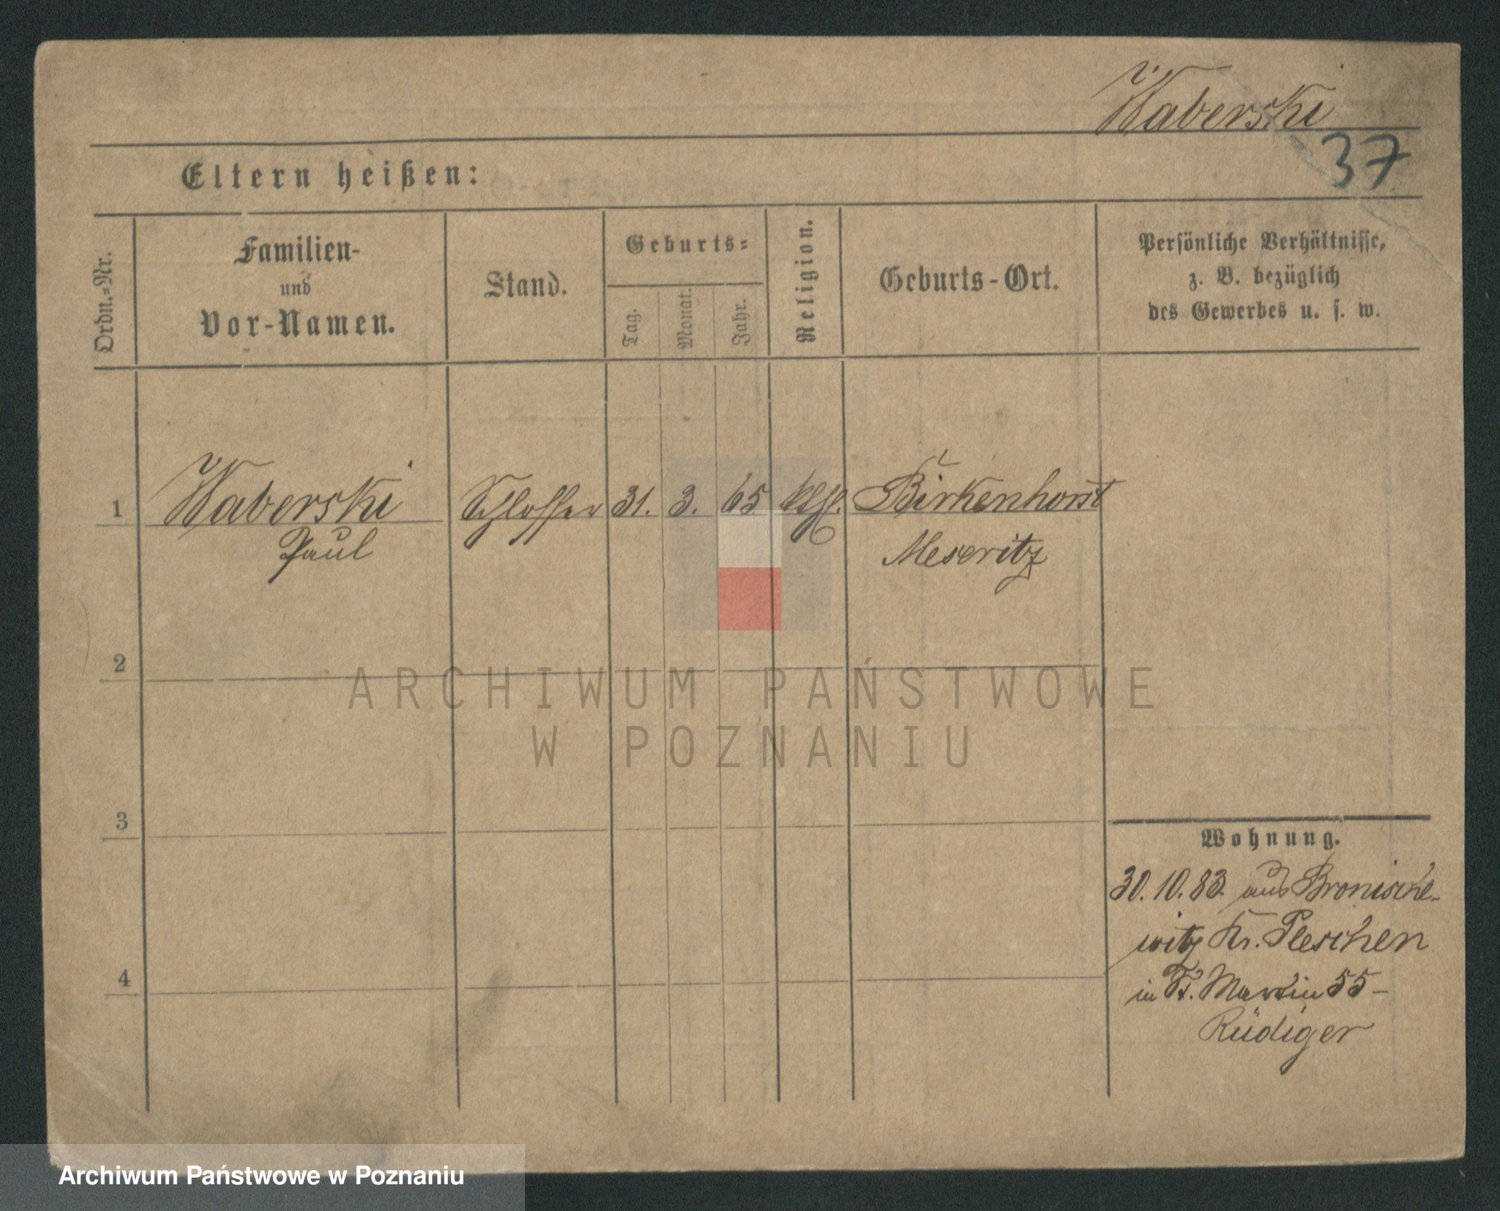 Waberski
37
Eltern heißen:
Ordn.=Nr.
Familien-
und
Vor-Namen.
Stand.
Geburts=
Tag.
Monat.
Jahr.
Religion.
Geburts-Ort.
Persönliche Verhältnisse,
z. B. bezüglich
des Gewerbes u. s. w.
1 Waberski Schlosser 31. 3. 65 Birkenhorst
Paul Meseritz
2
3
4
Wohnung.
30.10.83. aus Bronische-
witz Kr. Pleschen
in St. Martin 55-
Rüdiger
ARCHIWUM PAŃSTWOWE
W POZNANIU
Archiwum Państwowe w Poznaniu